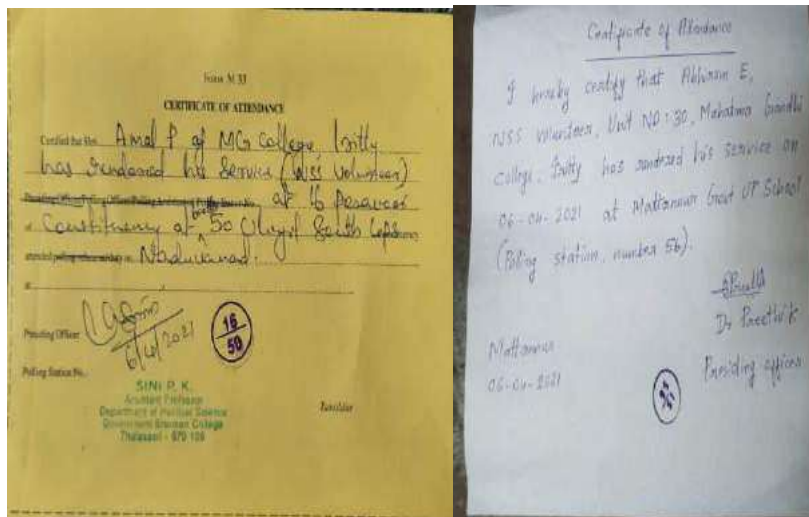 Form M 33
CERTIFICATE OF ATTENDANCE
Certified that Mr. Amal P of MG College Iritty
has rendered his Service (NSS Volunteer)
at 16 Peravoor
Constituency at booth 50
Naduvanad.
Presiding Officer
6/4/2021
16
50
Polling Station No.
SINI P. K.
Assistant Professor
Department of Political Science
Government Brennen College
Thalasseri - 670 106
Certificate of Attendance
I hereby certify that Abhiram E,
NSS Volunteer, Unit NO: 30, Mahatma Gandhi
College, Iritty has rendered his service on
06-04-2021 at Mattannur Govt UP School
(Poling station, number 56).
Dr Preethi
Mattannur
06-04-2021
Presiding officer